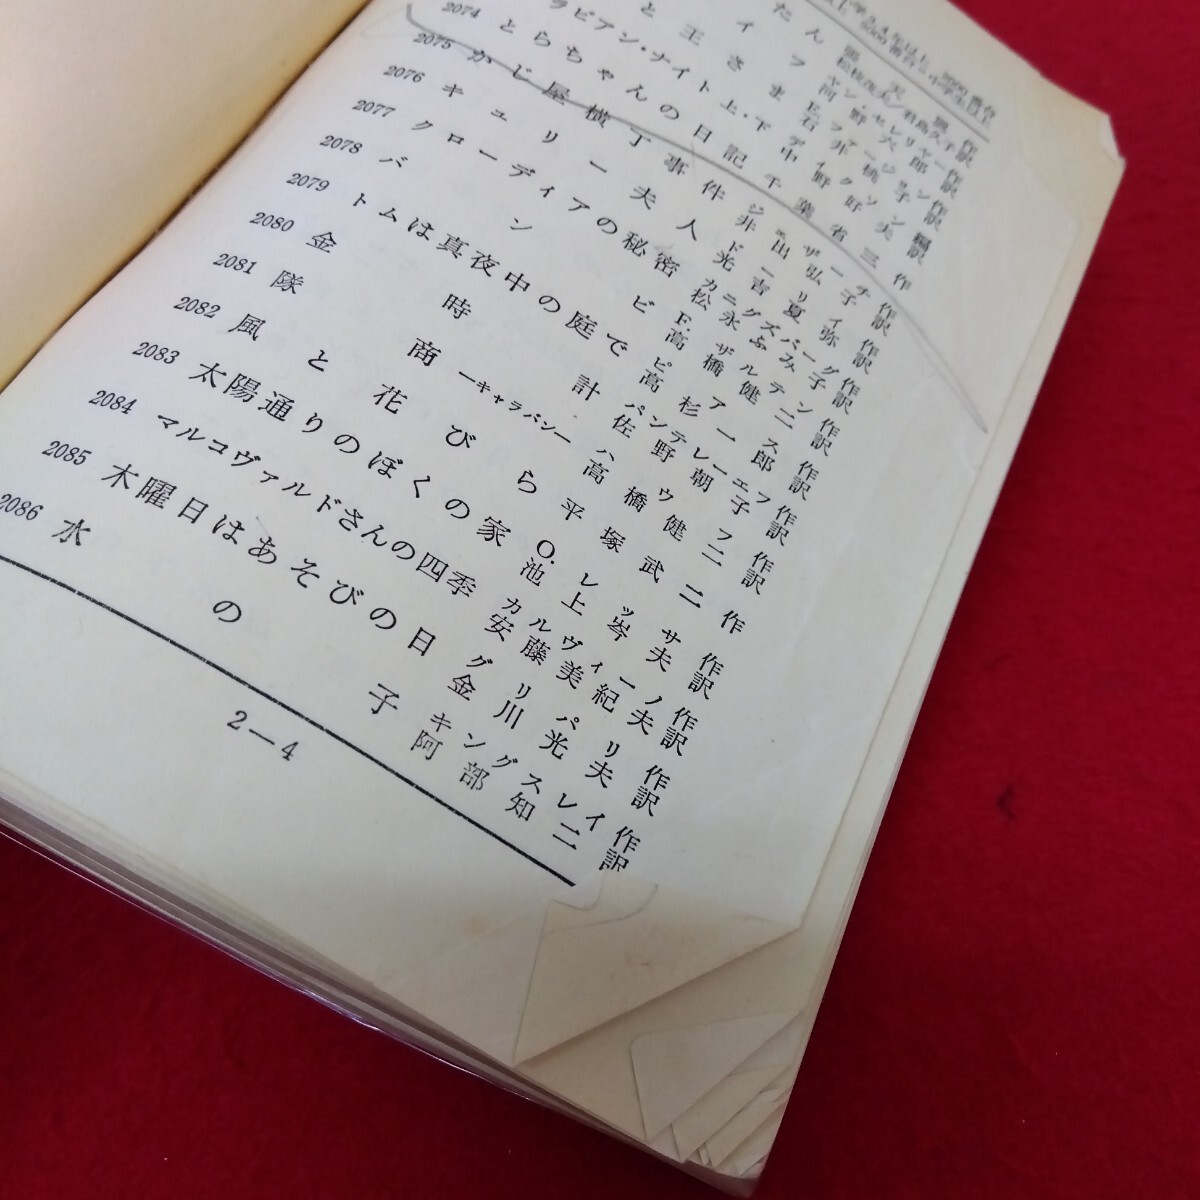 たん
イワン・セレリヤー作
と王さま
E・ファージョン作
石井桃子訳
アラビアン・ナイト 上・下
ディクソン編
中野好夫訳
2074 とらちゃんの日記 千葉省三作
2075 かじ屋横丁事件
2076 キュリー夫人
2077 クローディアの秘密 カニグズバーグ作
松永ふみ子訳
2078 バンビ F.ザルテン作
高橋健二訳
2079 トムは真夜中の庭で ピアス作
高杉一郎訳
2080 金時計 パンテレーエフ作
佐野朝子訳
2081 隊商―キャラバン― ハウフ作
高橋健二訳
2082 風と花びら 平塚武二作
2083 太陽通りのぼくの家 O.レッサ作
池上岑夫訳
2084 マルコヴァルドさんの四季 カルヴィーノ作
安藤美紀夫訳
2085 木曜日はあそびの日 グリパリ作
金川光夫訳
2086 水の子 キングスレイ作
阿部知二訳
2―4